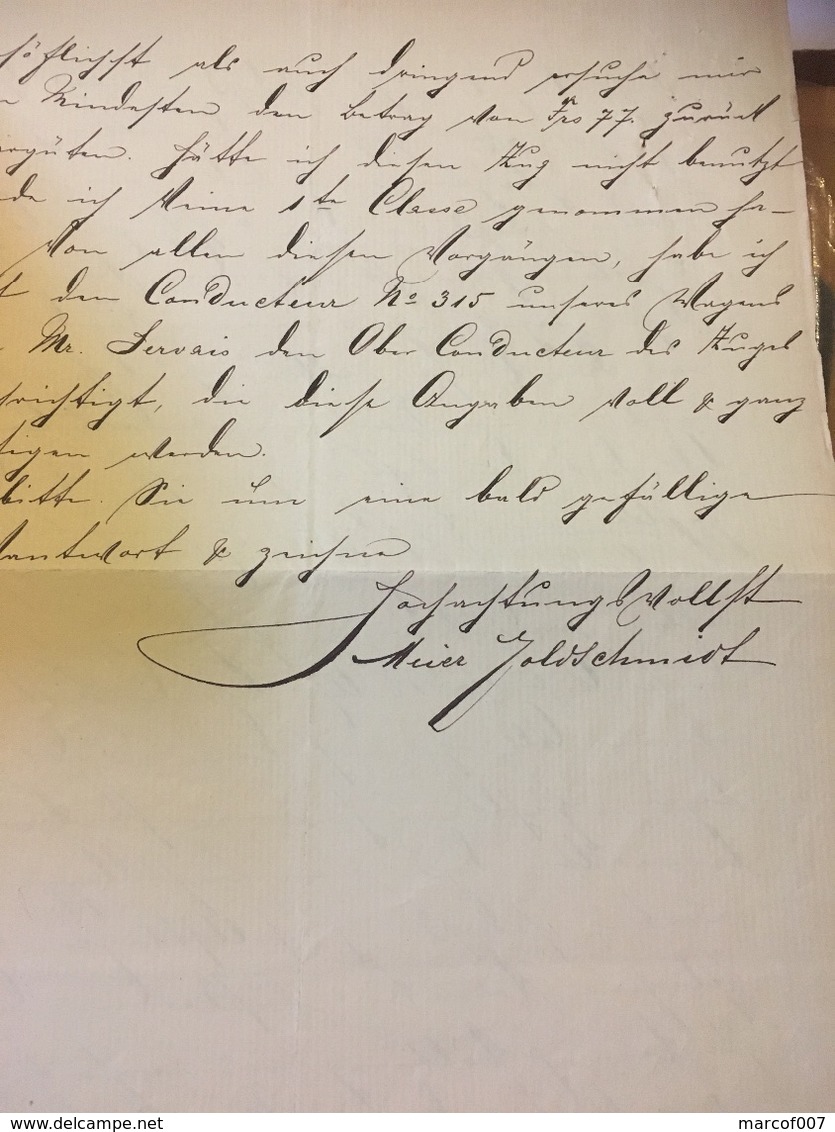 höflichst als auch dringend ersuche mir
Mindesten den Betrag von Frs 77. zurück
ergüten. Hätte ich diesen Zug nicht benutzt
de ich keine 1te Classe genommen ha-
Von allen diesen Vorgängen, habe ich
t den Conducteur No 315 unseres Wagens
Mr. Servais den Ober Conducteur des Zuges
richtigt, die diese Angaben voll & ganz
tigen werden.
bitte Sie um eine bald gefällige
antwort & zeichne
Hochachtungsvollst
Meier Goldschmidt
www.delcampe.net
marcof007